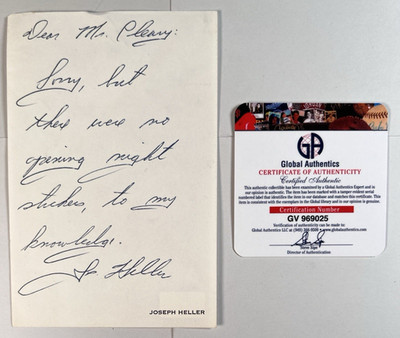 Dear Mr. Cleary:
Sorry, but
there were no
opening night
stickers, to my
knowledge.
Jo Heller
JOSEPH HELLER
GA
Global Authentics
CERTIFICATE OF AUTHENTICITY
Certified Authentic
This authentic collectible has been examined by a Global Authentics Expert and is
in our opinion genuine. The item has been marked with a tamper evident serial
numbered label that identifies the item in our database and matches this certificate. This
item is consistent with the exemplars in the Global library and in our opinion is genuine.
Certification Number
GV 969025
Verification of authenticity can be made to:
Steve Sipe
Director of Authentication